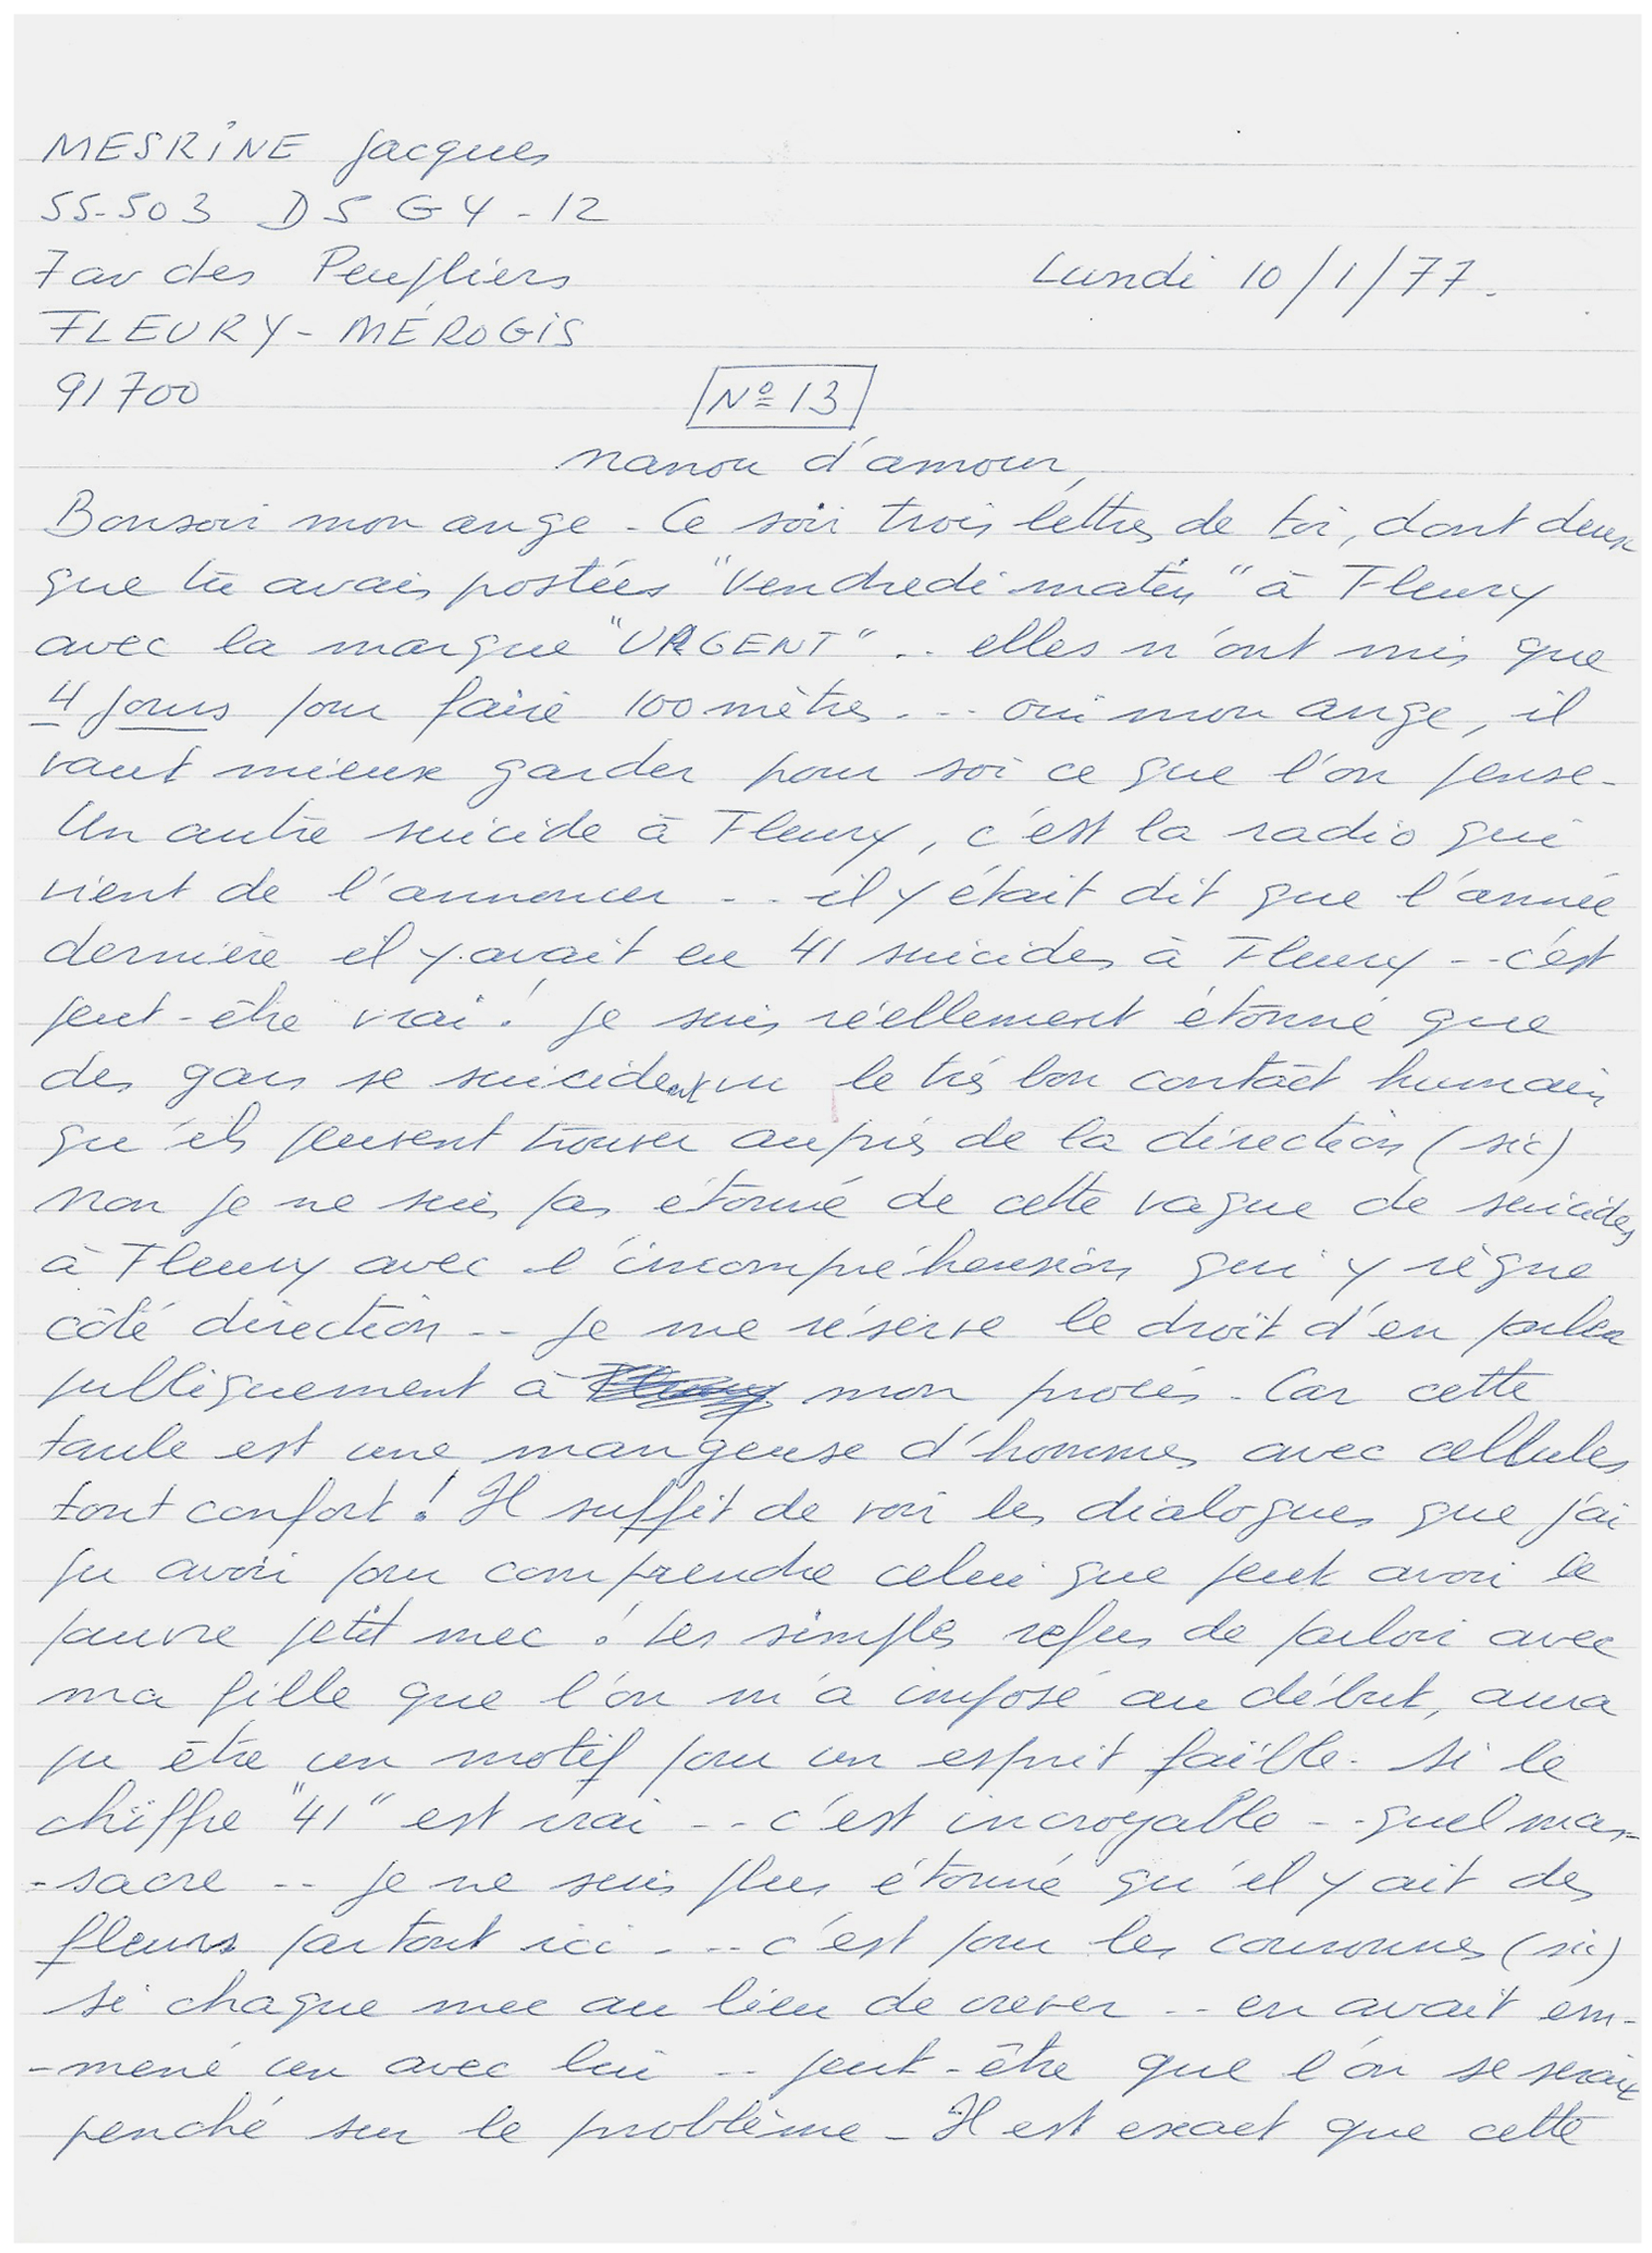 MESRINE Jacques
55-503 D5 G4-12
7 av des Peupliers
Lundi 10/1/77.
FLEURY-MÉROGIS
91700
Nº 13
nanou d'amour,
Bonsoir mon ange - Ce soir trois lettres de toi, dont deux
que tu avais postées "Vendredi matin" à Fleury
avec la marque "URGENT" .. elles n'ont mis que
4 jours pour faire 100 mètres ... oui mon ange, il
vaut mieux garder pour soi ce que l'on pense -
Un autre suicide à Fleury, c'est la radio qui
vient de l'annoncer .. il y était dit que l'année
dernière il y avait eu 41 suicides à Fleury -- c'est
peut-être vrai ! Je suis réellement étonné que
des gars se suicident vu le très bon contact humain
qu'ils peuvent trouver auprès de la direction (sic)
Non je ne suis pas étonné de cette vague de suicides
à Fleury avec l'incompréhension qui y règne
côté direction -- Je me réserve le droit d'en parler
publiquement à mon procès - Car cette
taule est une mangeuse d'hommes avec cellules
tout confort ! Il suffit de voir les dialogues que j'ai
pu avoir pour comprendre celui que peut avoir le
pauvre petit mec ! Les simples refus de parloir avec
ma fille que l'on m'a imposé au début, aura
pu être un motif pour un esprit faible - Si le
chiffre "41" est vrai -- c'est incroyable -- quel mas-
-sacre -- Je ne suis plus étonné qu'il y ait des
fleurs partout ici ... c'est pour les couronnes (sic)
Si chaque mec au lieu de crever -- en avait em-
-mené un avec lui -- peut-être que l'on se serait
penché sur le problème - Il est exact que cette